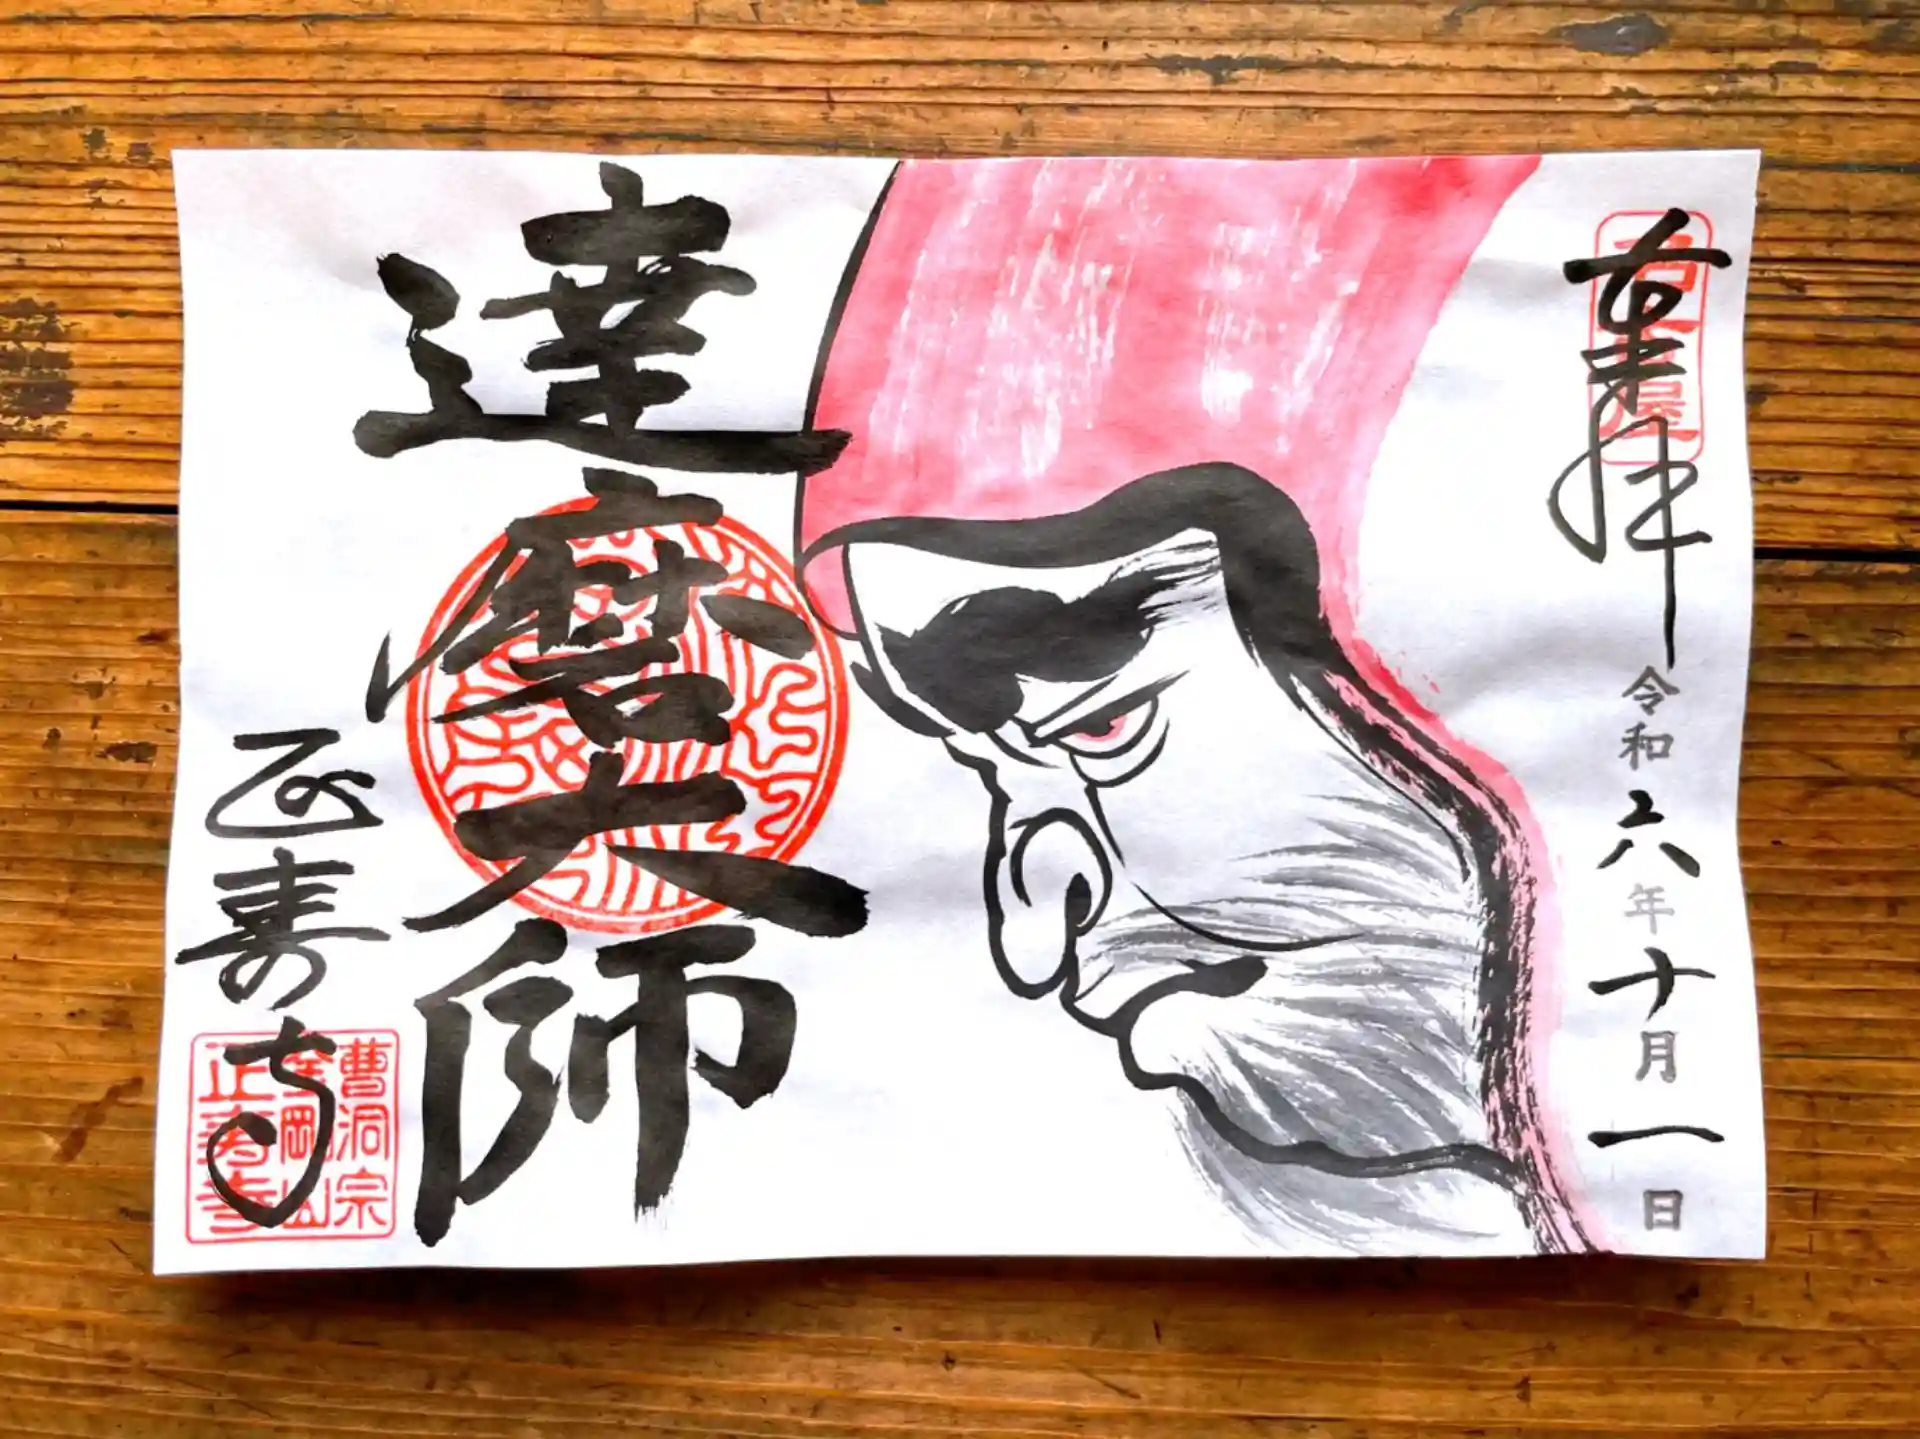 奉拝
令和六年十月一日
達磨大師
正寿寺
曹洞宗
正寿寺